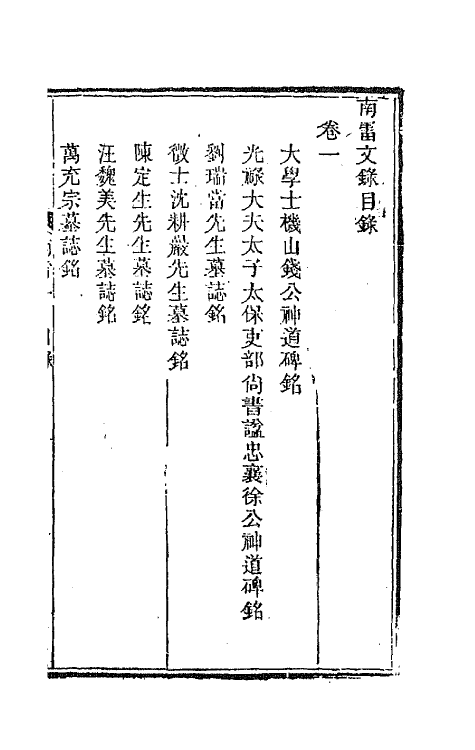 南雷文錄目錄
卷一
大學士機山錢公神道碑銘
光祿大夫太子太保吏部尙書諡忠襄徐公神道碑銘
劉瑞當先生墓誌銘
徵士沈耕巖先生墓誌銘
陳定生先生墓誌銘
汪魏美先生墓誌銘
萬充宗墓誌銘